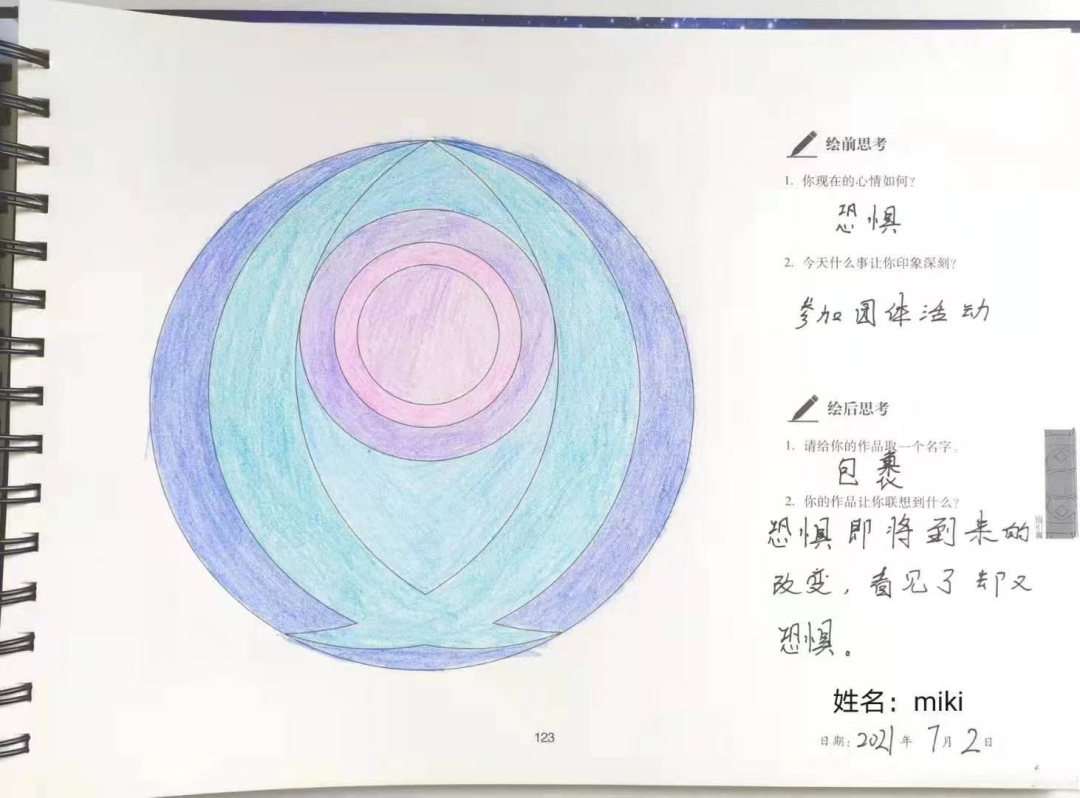 绘前思考
1. 你现在的心情如何?
恐惧
2. 今天什么事让你印象深刻?
参加团体活动
绘后思考
1. 请给你的作品取一个名字。
包裹
2. 你的作品让你联想到什么?
恐惧即将到来的
改变，看见了却又
恐惧。
姓名：miki
日期：2021年7月2日
123